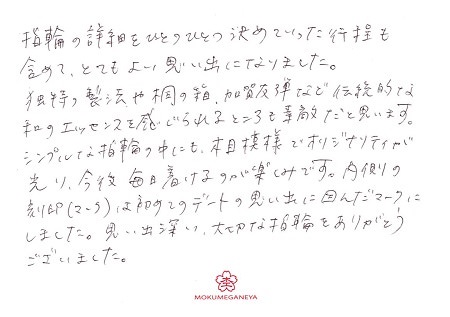 指輪の詳細をひとつひとつ決めていった行程も
含めて、とてもよい思い出になりました。
独特の製法や桐の箱、加賀友禅など伝統的な
和のエッセンスを感じられるところも素敵だと思います。
シンプルな指輪の中にも、木目模様でオリジナリティが
光り、今後毎日着けるのが楽しみです。内側の
刻印(マーク)は初めてのデートの思い出に因んだマークに
しました。思い出深い、大切な指輪をありがとう
ございました。
MOKUMEGANEYA